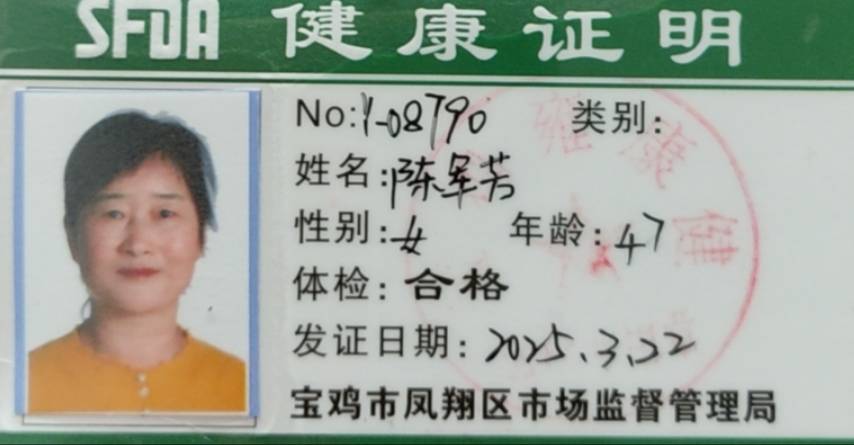 SFDA 健康证明
No:1-08790 类别:
姓名:陈军芳
性别:女 年龄:47
体检:合格
发证日期:2025.3.22
宝鸡市凤翔区市场监督管理局
康
健